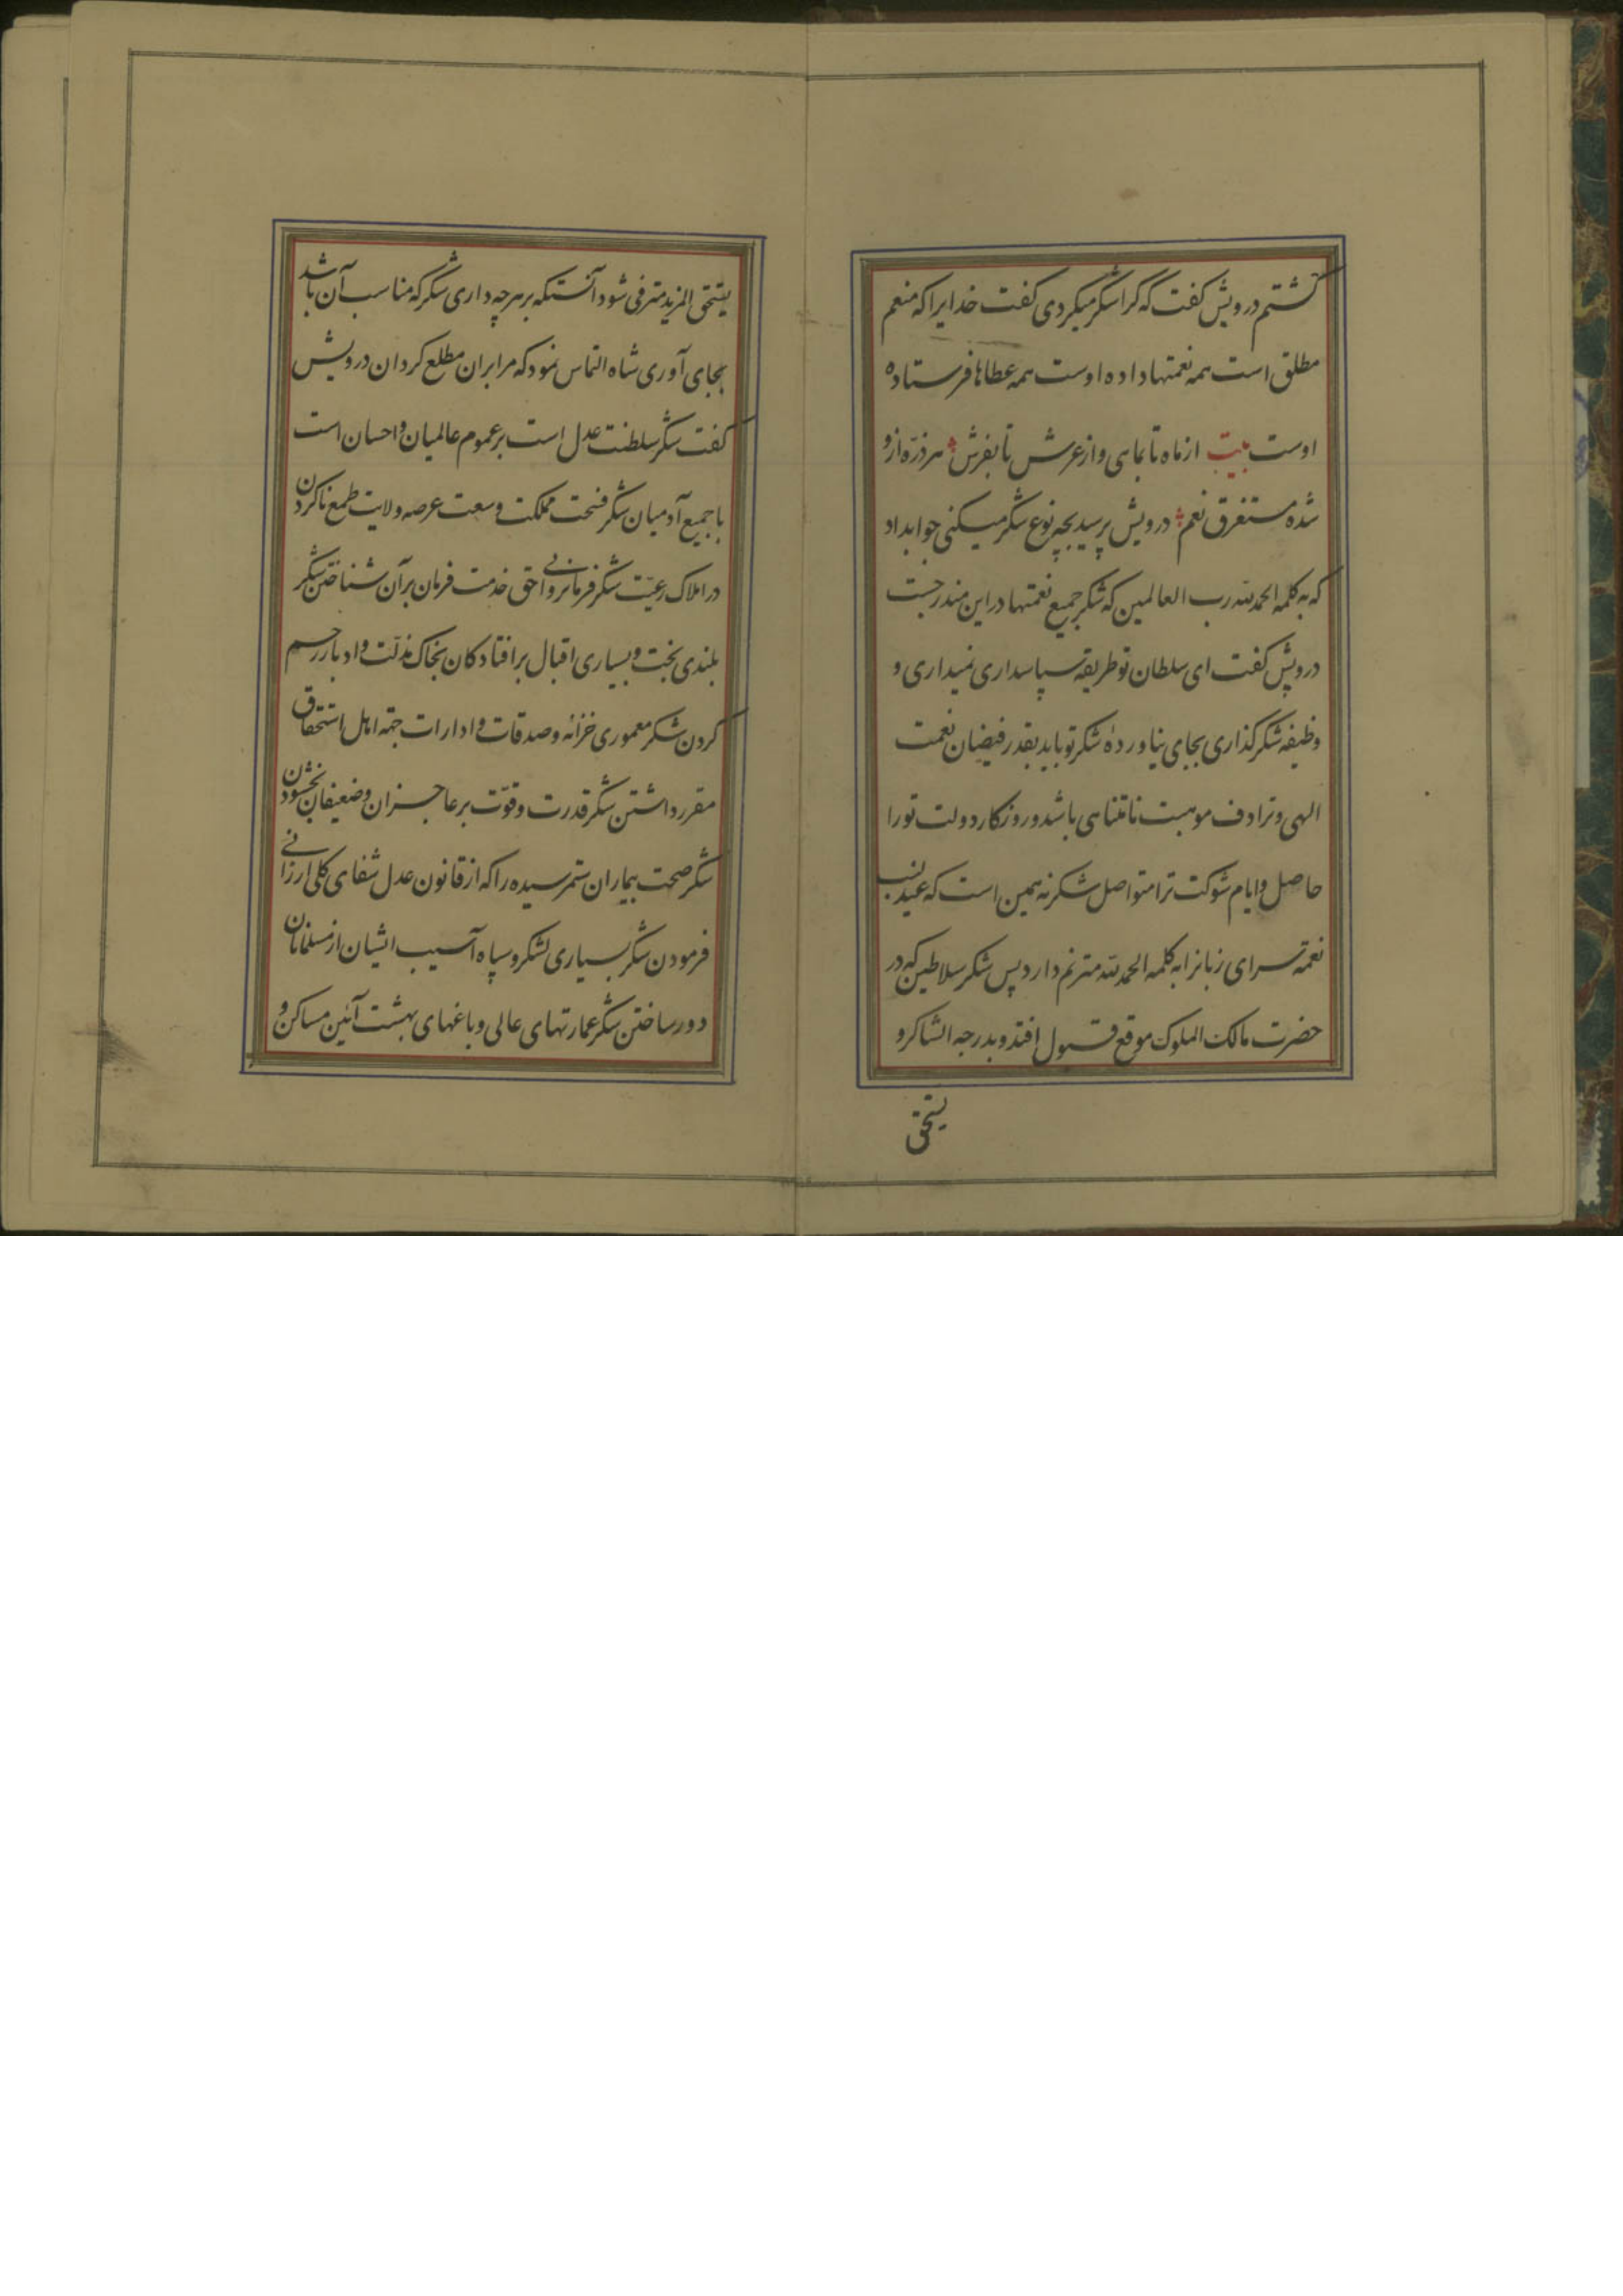 گشتم درویش گفت که کرا شکر میکردی گفت خدایرا که منعم
مطلق است همه نعمتها داده اوست همه عطاها فرستاده
اوست بیت از ماه تا بماهی و از عرش تا بفرش هر ذرّه ازو
شده مستغرق نعم درویش پرسید بچه نوع شکر میکنی جوابداد
که به کلمه الحمدلله رب العالمین که شکر جمیع نعمتها در این مندرجست
درویش گفت ای سلطان تو طریقه سپاسداری نمیداری و
وظیفه شکرگذاری بجای نیاوردهٔ شکر تو باید بقدر فیضان نعمت
الهی و ترادف موهبت نامتناهی باشد و روزگار دولت تو را
حاصل و ایام شوکت ترا متواصل شکر نه همین است که عندلیب
نغمه سرای زبانرا به کلمه الحمدلله مترنم دارد پس شکر سلاطین که در
حضرت مالک الملوک موقع قبول افتد و بدرجه الشاکرو
یستحق
یستحق المزید مترقی شود آنستکه بر هرچه داری شکر که مناسب آن باشد
بجای آوری شاه التماس نمود که مرا بران مطلع گردان درویش
گفت شکر سلطنت عدل است بر عموم عالمیان و احسان است
با جمیع آدمیان شکر فسحت مملکت و سعت عرصه ولایت طمع ناکردن
در املاک رعیّت شکر فرمانروائی حق خدمت فرمان برآن شناختن شکر
بلندی بخت و بسیاری اقبال بر افتادگان بخاک مذلّت و ادبار رحم
کردن شکر معموری خزانه و صدقات و ادارات جهته اهل استحقاق
مقرر داشتن شکر قدرت و قوّت بر عاجزان و ضعیفان بخشودن
شکر صحت بیماران ستم رسیده را که از قانون عدل شفای کلی ارزانی
فرمودن شکر بسیاری لشکر و سپاه آسیب ایشان از مسلمانان
دور ساختن شکر عمارتهای عالی و باغهای بهشت آئین مساکن و